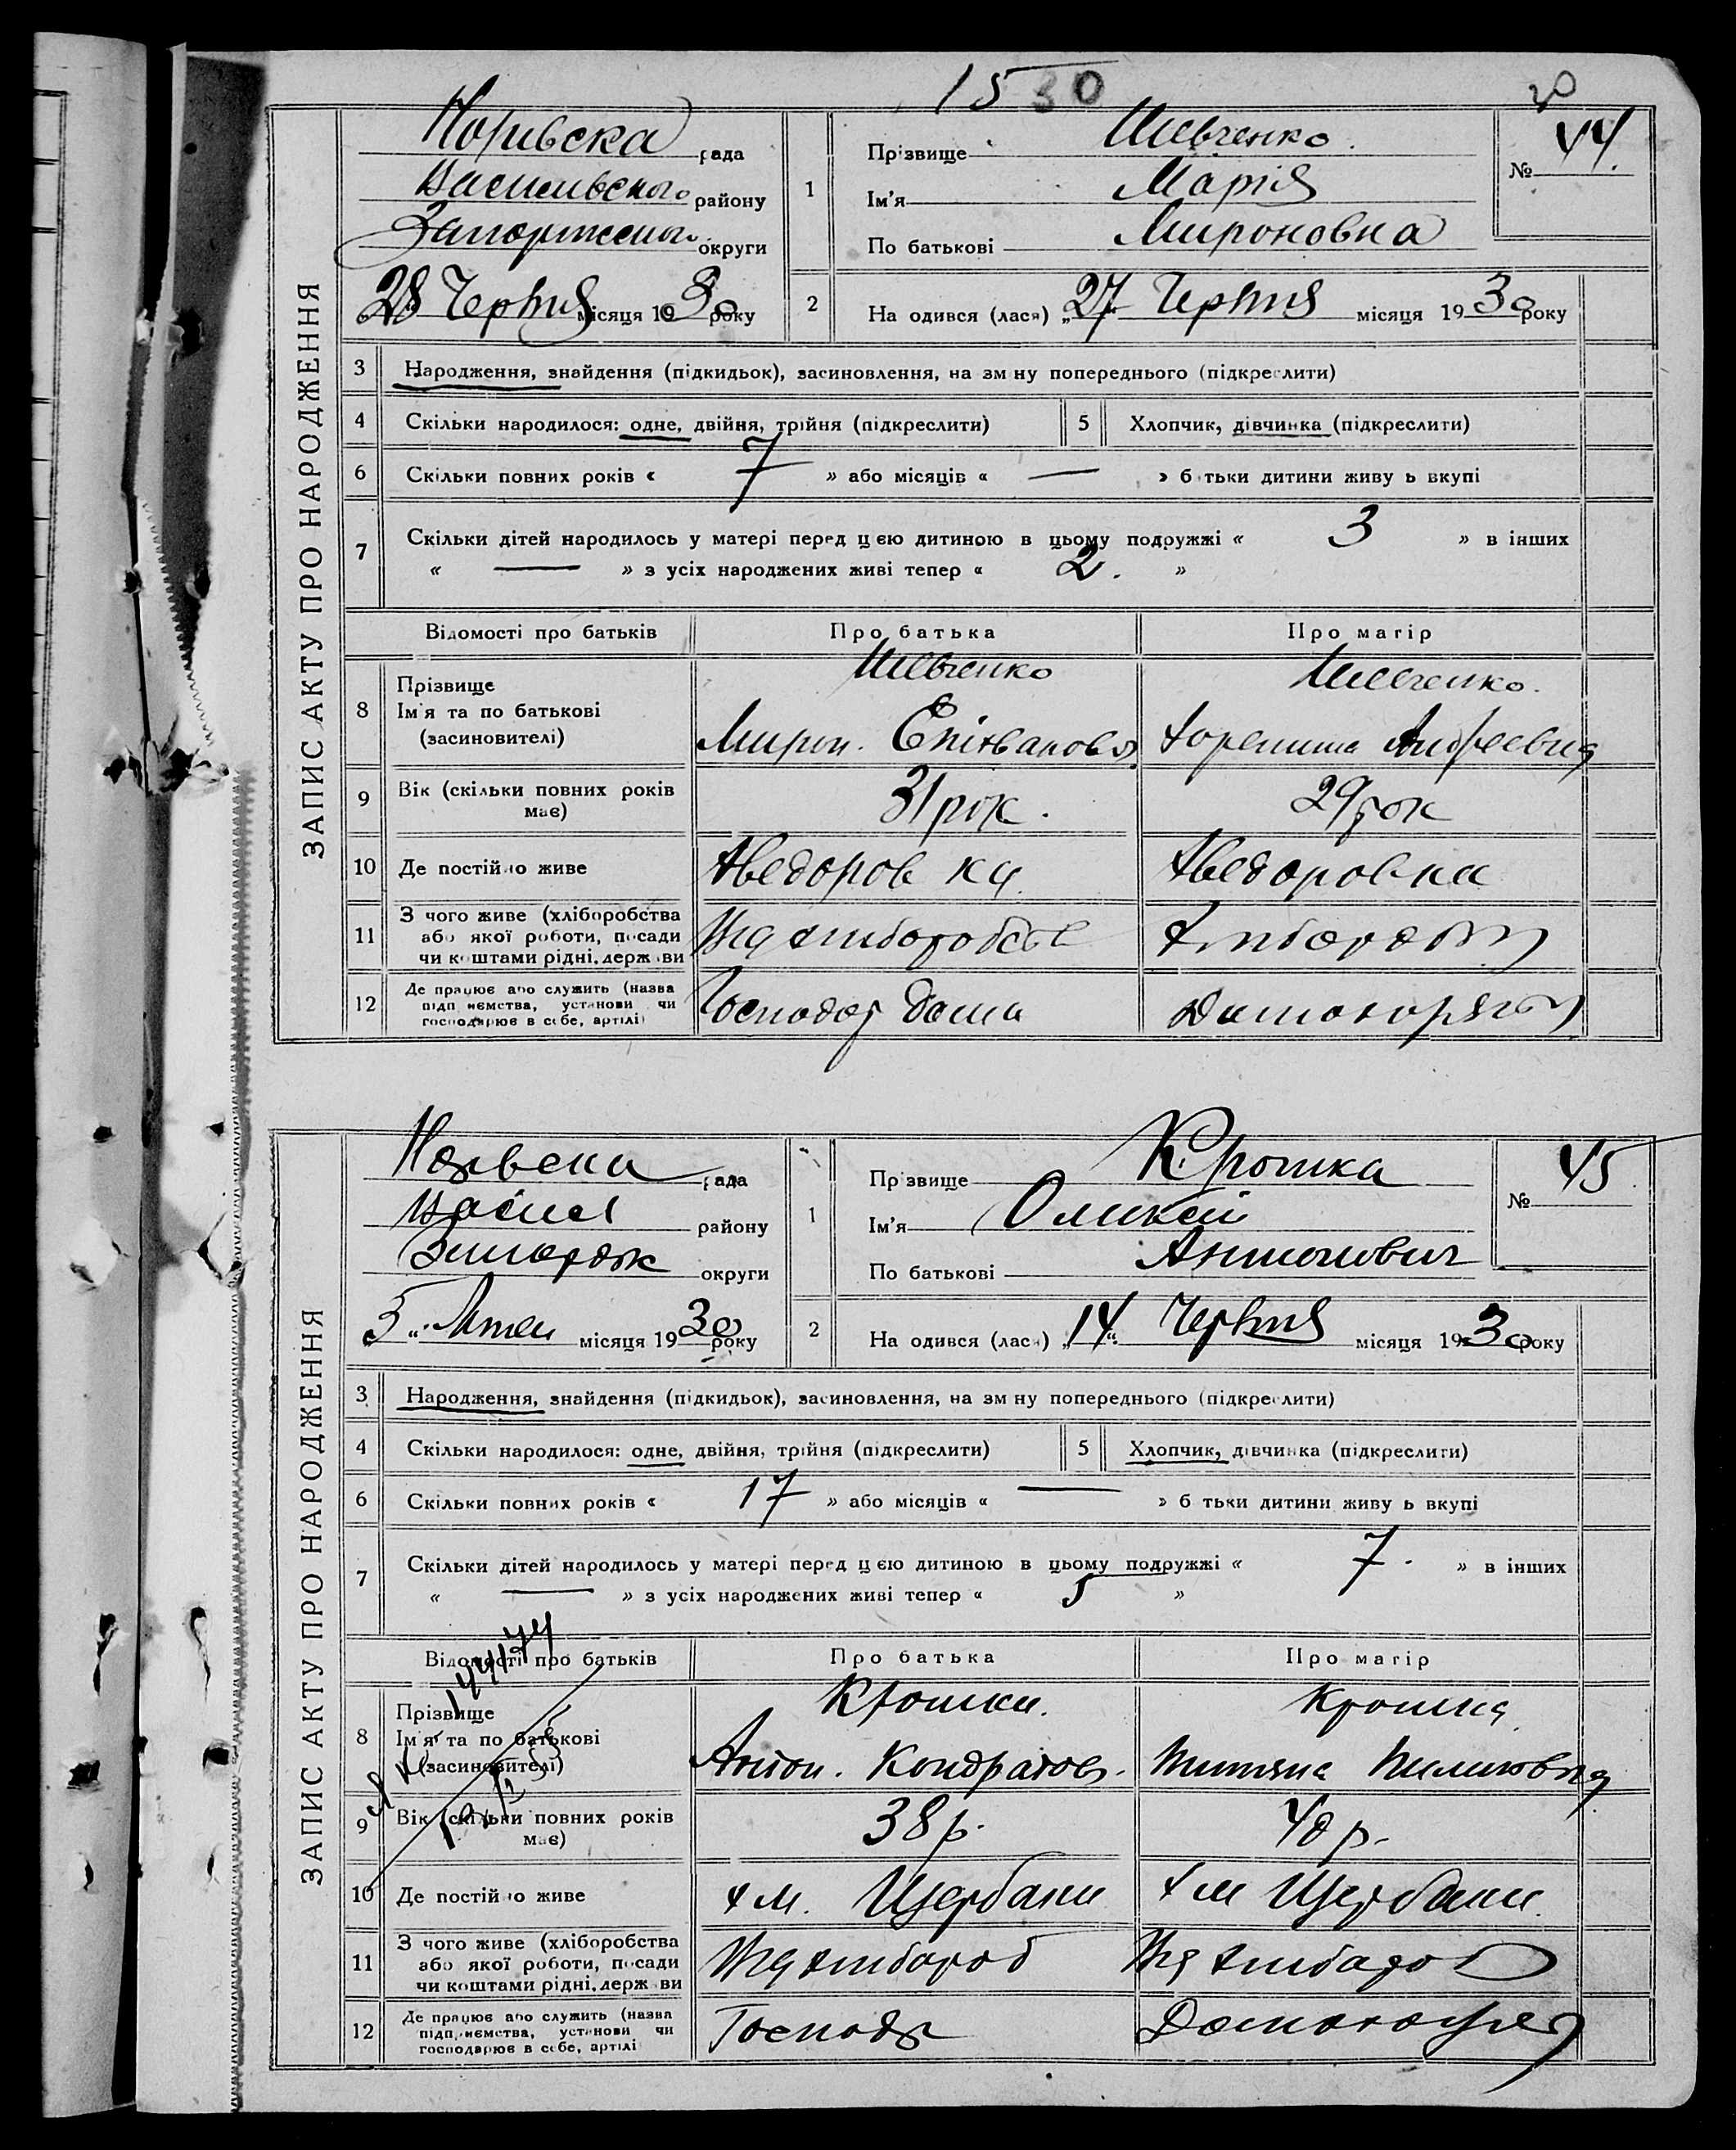 1530
30
ЗАПИС АКТУ ПРО НАРОДЖЕННЯ
рада
Васильвского району
округи
28 Червня місяця 1930 року
1
Прізвище Шевченко.
Ім'я Марія
По батькові Мироновна
№ 44.
2
На одився (лася) „27" Червня місяця 1930 року
3 Народження, знайдення (підкидьок), засиновлення, на зм ну попереднього (підкреслити)
4 Скільки народилося: одне, двійня, трійня (підкреслити)
5 Хлопчик, дівчинка (підкреслити)
6 Скільки повних років « 7 » або місяців « — » б тьки дитини живу ь вкупі
7 Скільки дітей народилось у матері перед цією дитиною в цьому подружжі « 3 » в інших
« — » з усіх народжених живі тепер « 2. »
Відомості про батьків Про батька Про матір
8 Прізвище
Ім'я та по батькові
(засиновителі)
Шевченко
Мирон.
Шевченко.
Андреевна
9 Вік (скільки повних років
має)
31 рок.
29 рок
10 Де постійно живе
Хведоровка
Хведоровка
11 З чого живе (хліборобства
або якої роботи, посади
чи коштами рідні, держави
12 Де працює або служить (назва
підприємства, установи чи
господарює в себе, артілі)
Господар дома
ЗАПИС АКТУ ПРО НАРОДЖЕННЯ
рада
району
округи
5 місяця 1930 року
1
Прізвище Крошка
Ім'я Оликсій
По батькові Антонович
№ 45
2
На одився (лася) „14" Червня місяця 1930 року
3 Народження, знайдення (підкидьок), засиновлення, на зм ну попереднього (підкреслити)
4 Скільки народилося: одне, двійня, трійня (підкреслити)
5 Хлопчик, дівчинка (підкреслити)
6 Скільки повних років « 17 » або місяців « — » б тьки дитини живу ь вкупі
7 Скільки дітей народилось у матері перед цією дитиною в цьому подружжі « 7. » в інших
« — » з усіх народжених живі тепер « 5 »
Відомості про батьків Про батька Про матір
8 Прізвище
Ім'я та по батькові
(засиновителі)
Крошка.
Антон. Кондратов.
Крошка
Титяна
9 Вік (скільки повних років
має)
38 р.
40 р.
10 Де постійно живе
х м. Щербаки
х м Щербаки.
11 З чого живе (хліборобства
або якої роботи, посади
чи коштами рідні, держави
Ия хлибороб
12 Де працює або служить (назва
підприємства, установи чи
господарює в себе, артілі
Господар